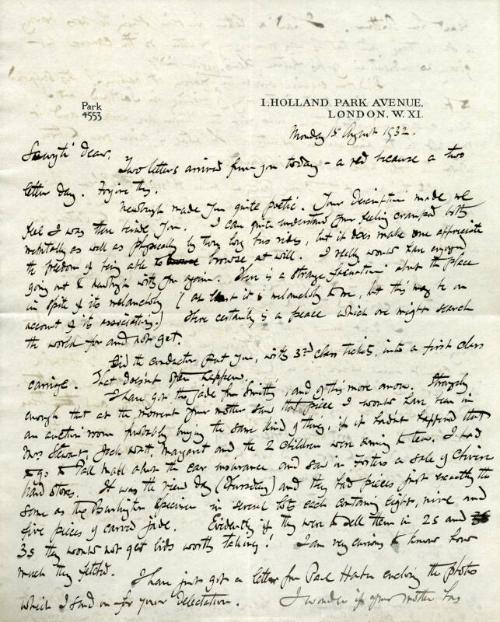 Park
4553
1. HOLLAND PARK AVENUE,
LONDON. W. XI.
Monday 15 August 1932.
Dear,
Two letters arrived from you today – a red because a two
letter day. Forgive this.
Newburgh made you quite poetic. Your description made me
feel I was there beside you. I can quite understand your feeling cramped both
mentally as well as physically by two long bus rides, but it does make one appreciate
the freedom of being able to browse at will. I really would have enjoyed
going out to Newburgh with you again. There is a strange fascination about the place
in spite of its melancholy (at least it is melancholy to me, but this may be on
account of its associations). There certainly is a peace which one might search
the world for and not get.
Did the conductor put you, with 3rd class tickets, into a first class
carriage. That doesn't often happen.
I have got the jade for Smithy, and of this more anon. Strangely
enough that at the moment your mother saw the piece I would have been in
an auction room probably buying the same kind of thing, if it hadn't happened that
Mrs Stewart, Jack Watt, Margaret and the 2 children were coming to tea. I had
to go to Pall Mall about the car insurance and saw in Fosters a sale of Chinese
hard stones. It was the view day (Thursday) and they had pieces just exactly the
same as the Burlington specimen in several lots each containing eight, nine and
five pieces of carved jade. Evidently if they were to sell them in 2s and
3s they would not get bids worth taking! I am very curious to know how
much they fetched.
I have just got a letter from Paul enclosing the photos
which I send on for your delectation. I wonder if your mother has